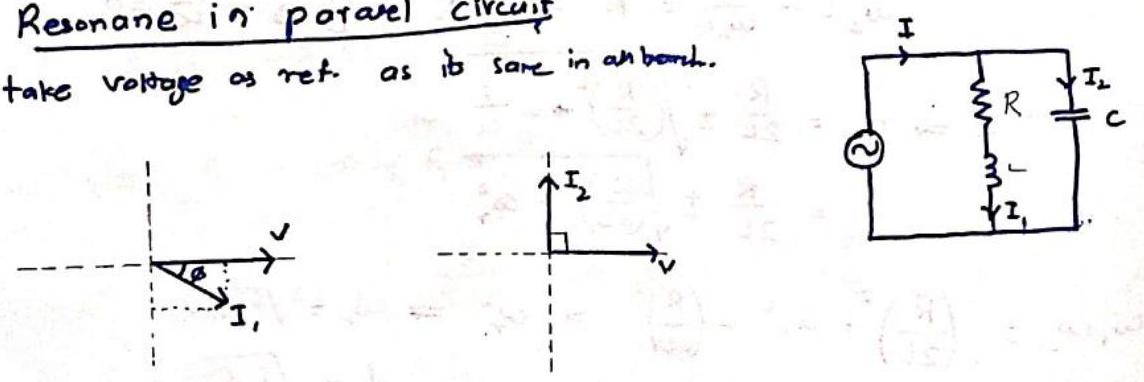 Resonane in paravel circuit
take voltage as ref. as its same in all
I
R
I2
C
L
I1
V
ø
I1
I2
V